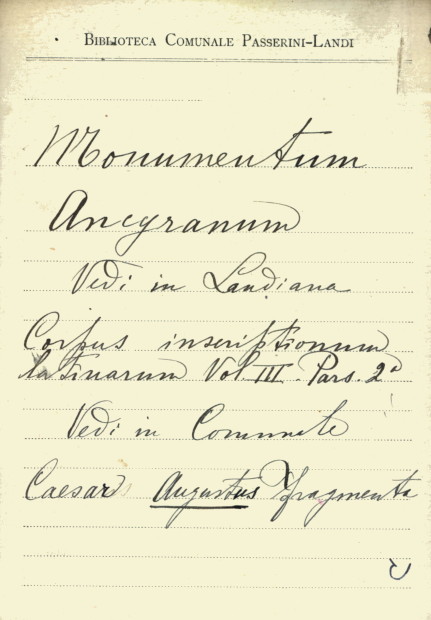 BIBLIOTECA COMUNALE PASSERINI-LANDI
Monumentum
Ancyranum
Vedi in Landiana
Corpus inscriptionum
latinarum Vol. III. Pars. 2ª
Vedi in Comunale
Caesar Augustus fragmenta